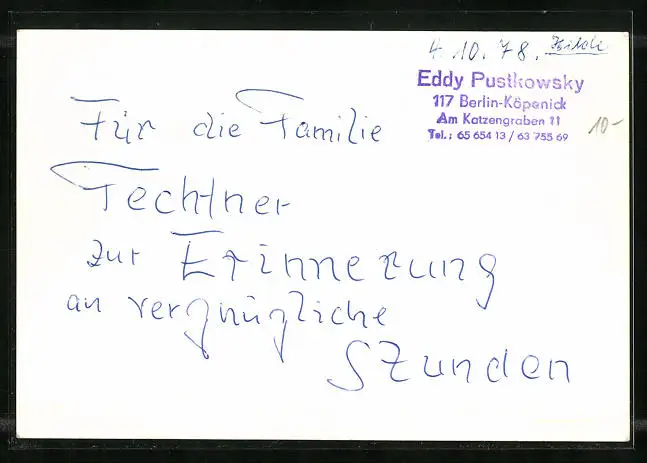 4.10.78.
Eddy Pustkowsky
117 Berlin-Köpenick
Am Katzengraben 11
Tel.: 65 654 13 / 63 755 69
10-
Für die Familie
Techtner
zur Erinnerung
an vergnügliche
Stunden